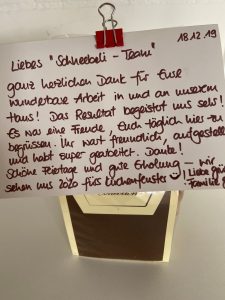 18.12.19
Liebes "Schneebeli-Team"
ganz herzlichen Dank für Eure
wunderbare Arbeit in und an unserem
Haus! Das Resultat begeistert uns sehr!
Es war eine Freude, Euch täglich hier zu
begrüssen. Ihr wart freundlich, aufgestellt
und habt super gearbeitet. Danke!
Schöne Feiertage und gute Erholung – wir
sehen uns 2020 fürs Küchenfenster ☺
Liebe
Familie